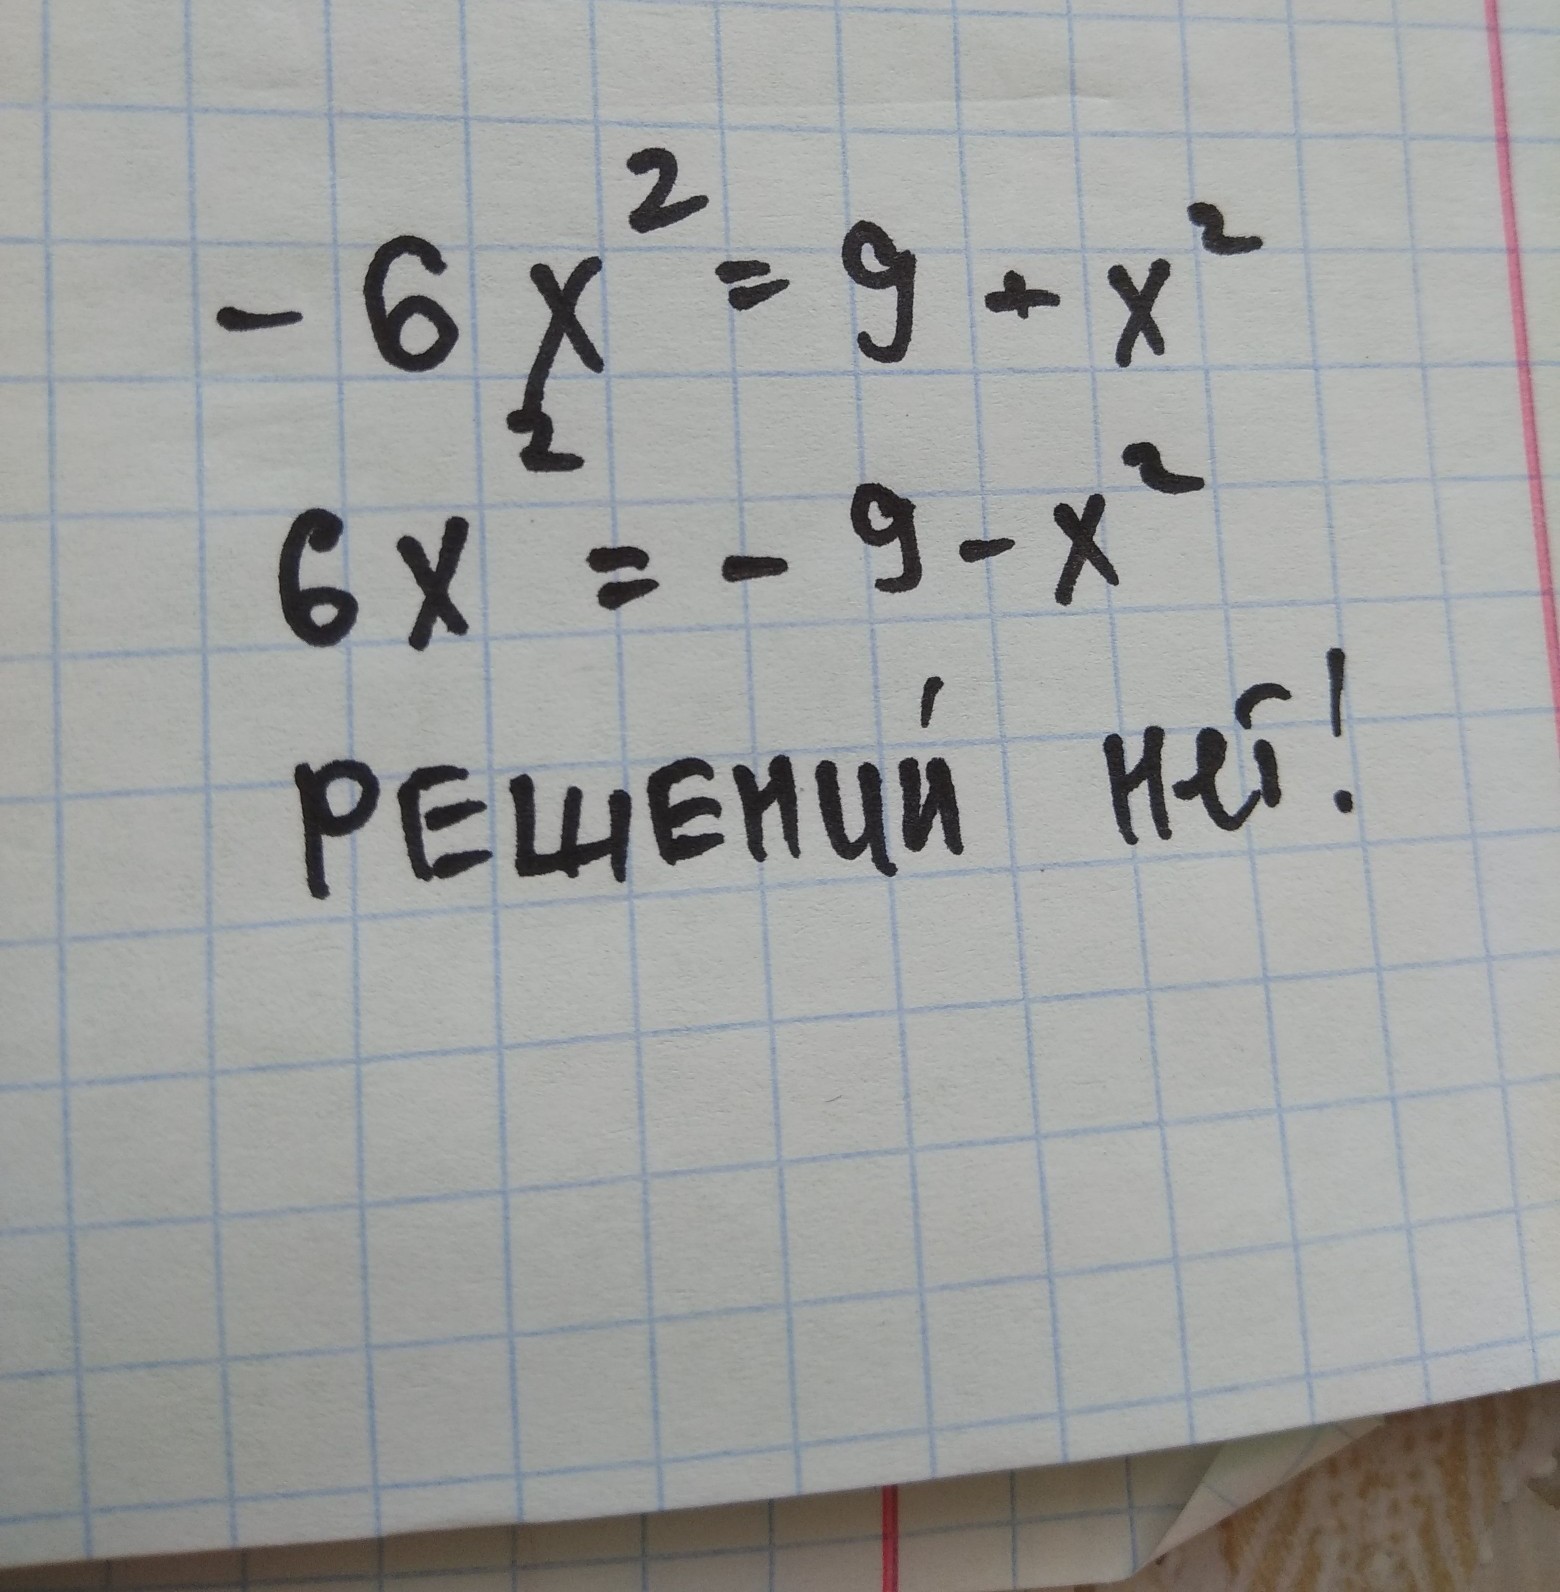 - 6 x² = 9 + x²
2
6x = - 9 - x²
РЕШЕНИЙ нет!